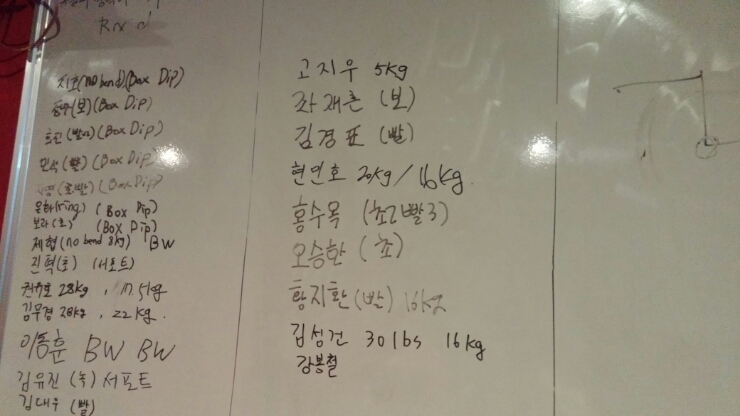 Rx d
지호(no band)(Box Dip)
동우(보)(Box Dip)
효진(빨)(Box Dip)
민석(빨)(Box Dip)
(Box Dip)
윤하(ring) (Box Dip)
보라(초) (Box Dip)
제협(no band 8kg) BW
진혁(초) (서포트)
권유호 28kg, 17.5kg
김무경 28kg, 22kg.
이동훈 BW BW
김유진(녹)서포트
김대우(빨)
고지우 5kg
좌재흔(보)
김경표(빨)
현언호 20kg/16kg.
홍수목(초2빨3)
오승환(초)
황지환(빨)16kg
김성건 30lbs 16kg
강봉철